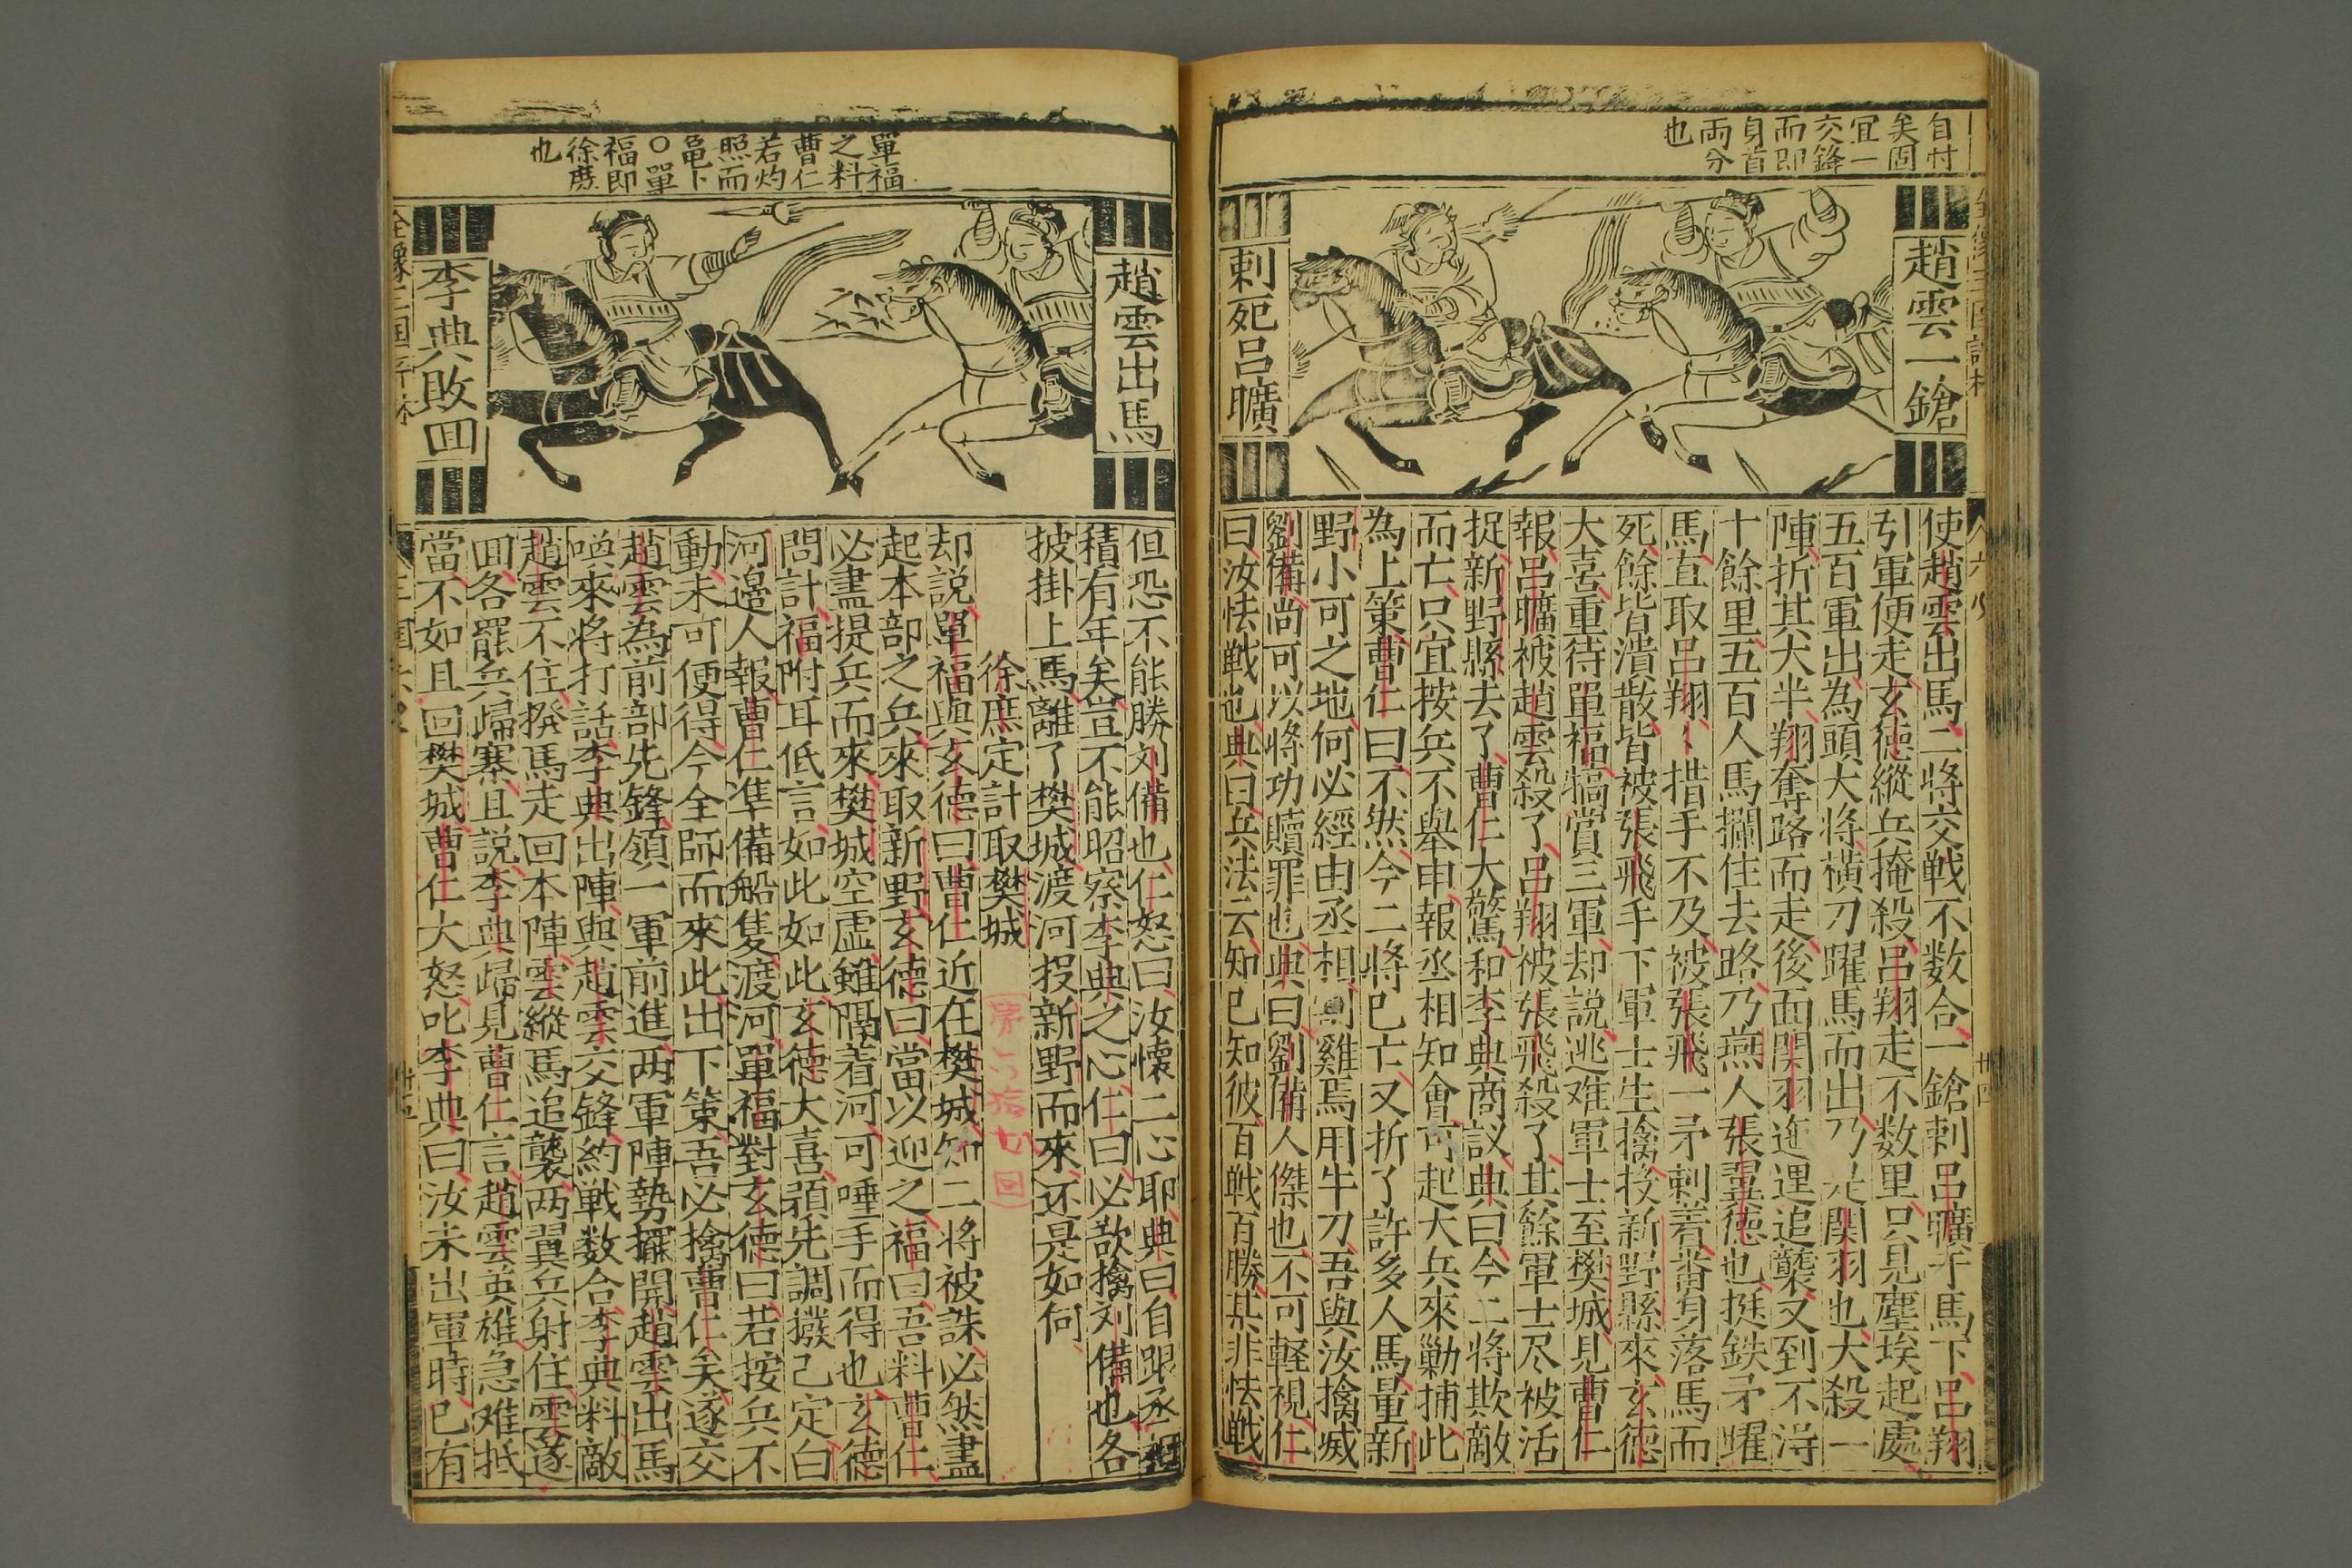 自忖
矣固
宜一
交鋒
而即
身首
両分
也
趙雲一鎗
刺死呂曠
使趙雲出馬二将交戦不数合一鎗刺呂曠于馬下呂翔
引軍便走玄徳縱兵掩殺呂翔走不数里只見塵埃起處
五百軍出為頭大将横刀躍馬而出乃是関羽也大殺一
陣折其大半翔奪路而走後面関羽迤逦追襲又到不得
十餘里五百人馬攔住去路乃燕人張翼徳也挺鉄矛躍
馬直取呂翔々措手不及被張飛一矛刺着番身落馬而
死餘皆潰散皆被張飛手下軍士生擒投新野縣來玄徳
大喜重待單福犒賞三軍却説逃难軍士至樊城見曹仁
報呂曠被趙雲殺了呂翔被張飛殺了其餘軍士尽被活
捉新野縣去了曹仁大驚和李典商议典曰今二將欺敵
而亡只宜按兵不舉申報丞相知會可起大兵來勦捕此
為上策曹仁曰不然今二將已亡又折了許多人馬量新
野小可之地何必經由丞相割雞焉用牛刀吾與汝擒滅
劉備尚可以将功贖罪也典曰劉備人傑也不可軽視仁
曰汝怯戦也典曰兵法云知已知彼百戦百勝某非怯戦
單福
之料
曹仁
若灼
照而
亀卜
○單
福即
徐庶
也
趙雲出馬
李典敗囬
但恐不能勝刘備也仁怒曰汝懷二心耶典曰自跟丞相
積有年矣豈不能昭察李典之心仁曰必欲擒刘備也各
披掛上馬離了樊城渡河投新野而來还是如何
徐庶定計取樊城
第六拾七回
却説單福與玄徳曰曹仁近在樊城知二将被誅必然盡
起本部之兵來取新野玄徳曰當以迎之福曰吾料曹仁
必盡提兵而來樊城空虚雖隔着河可唾手而得也玄徳
問計福附耳低言如此如此玄徳大喜預先調撥已定白
河邊人報曹仁準備船隻渡河單福對玄徳曰若按兵不
動未可便得今全師而來此出下策吾必擒曹仁矣遂交
趙雲為前部先鋒領一軍前進两軍陣勢擺開趙雲出馬
喚來将打話李典出陣與趙雲交鋒約戦数合李典料敵
趙雲不住撥馬走回本陣雲縱馬追襲两翼兵射住雲遂
囬各罷兵歸寨且説李典歸見曹仁言趙雲英雄急难抵
當不如且回樊城曹仁大怒叱李典曰汝未出軍時已有